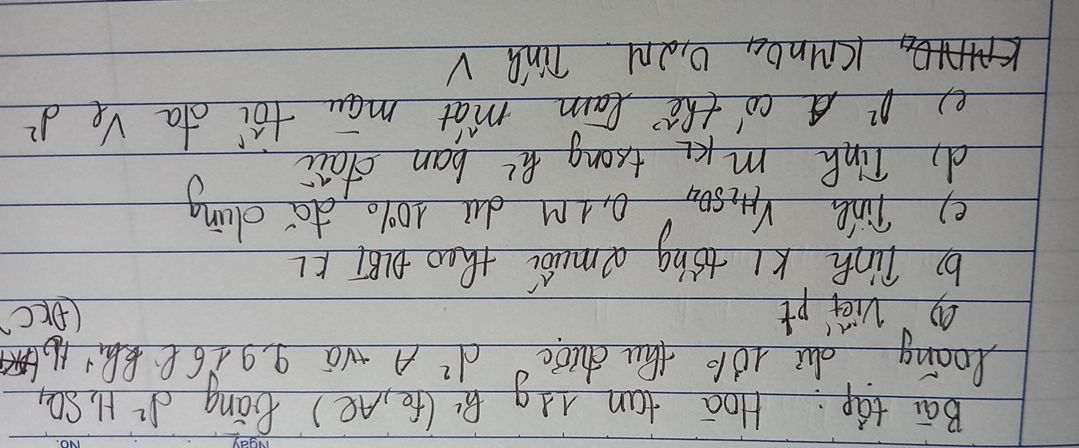 No. Ngày
Bài tập: Hoà tan 11g h² (Fe, Al) bằng d² H₂SO₄
loãng dư 10% thu được d² A và 9.916 l khí H₂ (ĐKC)
a) Viết pt
b) Tính KL từng muối theo ĐLBT KL
c) Tính V H₂SO₄ 0,1M dư 10% đã dùng
d) Tính m KL trong h² ban đầu
e) d² A có thể làm mất màu tối đa V l d²
KMnO₄ 0,2M Tính V